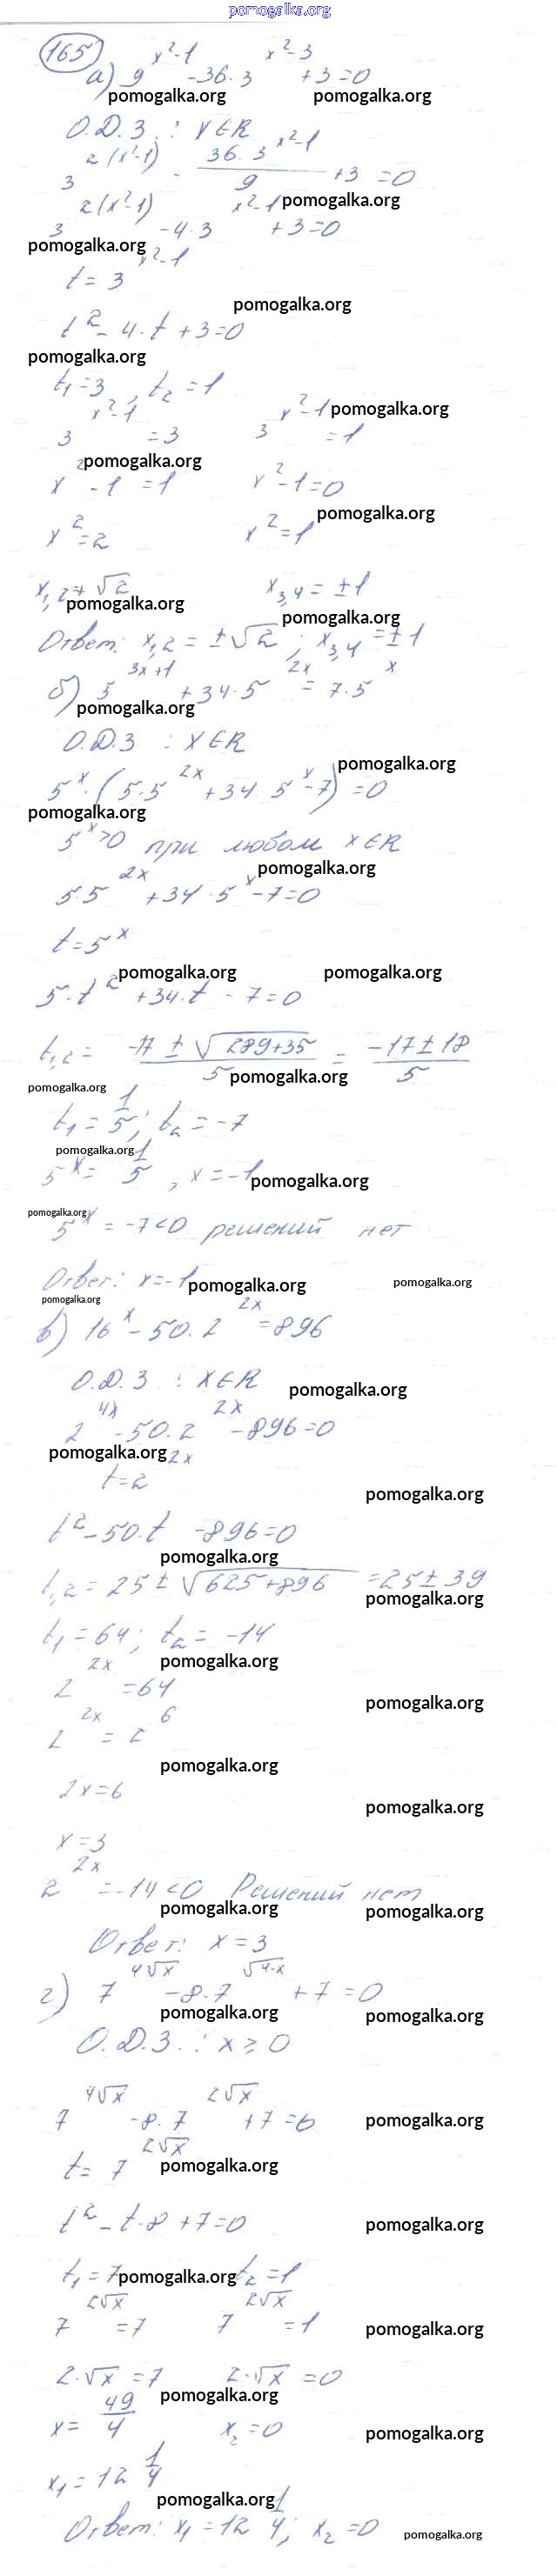 pomogalka.org
165
а) 9^(x²-1) - 36·3^(x²-3) + 3 = 0
pomogalka.org pomogalka.org
О.Д.З. : X∈R
3^(2(x²-1)) - (36·3^(x²-1))/9 + 3 = 0
pomogalka.org
3^(2(x²-1)) - 4·3^(x²-1) + 3 = 0
pomogalka.org
t = 3^(x²-1)
pomogalka.org
t² - 4·t + 3 = 0
pomogalka.org
t₁ = 3, t₂ = 1
pomogalka.org
3^(x²-1) = 3 3^(x²-1) = 1
pomogalka.org
x² - 1 = 1 x² - 1 = 0
pomogalka.org
x² = 2 x² = 1
x₁,₂ = ± √2 x₃,₄ = ±1
pomogalka.org
pomogalka.org
Ответ: x₁,₂ = ±√2 ; x₃,₄ = ±1
б) 5^(3x+1) + 34·5^(2x) = 7·5^x
pomogalka.org
О.Д.З : X∈R
pomogalka.org
5^x·(5·5^(2x) + 34 5^x - 7) = 0
pomogalka.org
5^x > 0 при любом X∈R
pomogalka.org
5·5^(2x) + 34·5^x - 7 = 0
t = 5^x
pomogalka.org pomogalka.org
5·t² + 34·t - 7 = 0
t₁,₂ = (-17 ± √(289+35))/5 = (-17 ± 18)/5
pomogalka.org
pomogalka.org
t₁ = 1/5 ; t₂ = -7
pomogalka.org
5^x = 1/5 , x = -1
pomogalka.org
pomogalka.org
5^x = -7 < 0 решений нет
Ответ: x = -1
pomogalka.org pomogalka.org
pomogalka.org
в) 16^x - 50·2^(2x) = 896
О.Д.З : X∈R
pomogalka.org
2^(4x) - 50·2^(2x) - 896 = 0
pomogalka.org
t = 2^(2x)
pomogalka.org
t² - 50·t - 896 = 0
pomogalka.org
t₁,₂ = 25 ± √(625+896) = 25 ± 39
pomogalka.org
t₁ = 64 ; t₂ = -14
pomogalka.org
2^(2x) = 64
pomogalka.org
2^(2x) = 2^6
pomogalka.org
2x = 6
pomogalka.org
x = 3
2^(2x) = -14 < 0 Решений нет
pomogalka.org pomogalka.org
Ответ: x = 3
г) 7^(4√x) - 8·7^(√(4·x)) + 7 = 0
pomogalka.org pomogalka.org
О.Д.З. : x ≥ 0
7^(4√x) - 8·7^(2√x) + 7 = 0
pomogalka.org
t = 7^(2√x)
pomogalka.org
t² - t·8 + 7 = 0
pomogalka.org
t₁ = 7 t₂ = 1
pomogalka.org
7^(2√x) = 7 7^(2√x) = 1
pomogalka.org
2·√x = 7 2·√x = 0
pomogalka.org
x = 49/4 x₂ = 0
pomogalka.org
x₁ = 12 1/4
pomogalka.org
Ответ: x₁ = 12 1/4 ; x₂ = 0
pomogalka.org